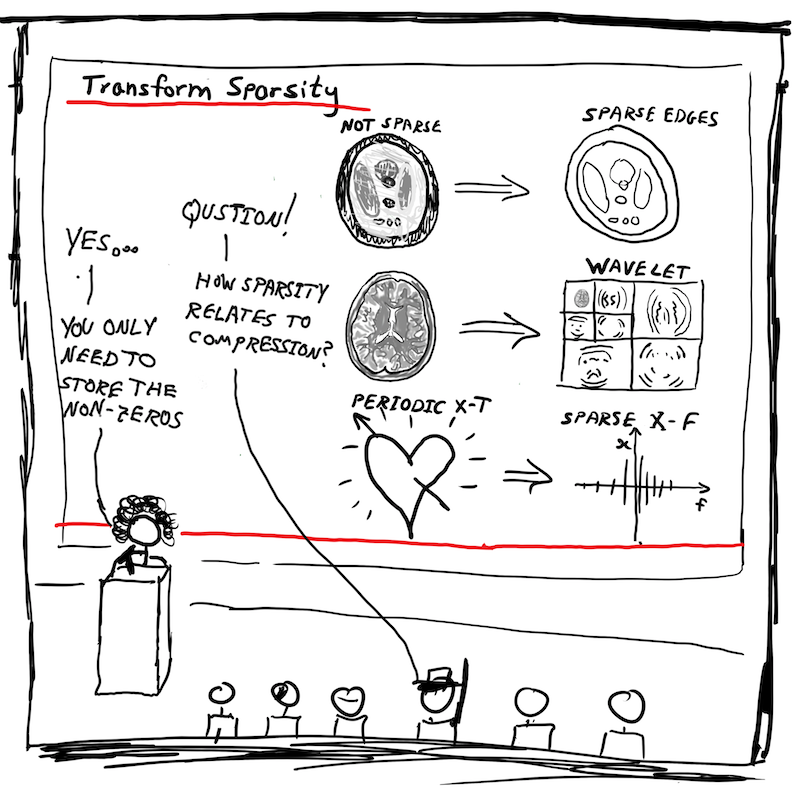 Transform Sparsity
NOT SPARSE
SPARSE EDGES
WAVELET
PERIODIC X-T
SPARSE X-F
x
f
QUSTION!
HOW SPARSITY
RELATES TO
COMPRESSION?
YES...
YOU ONLY
NEED TO
STORE THE
NON-ZEROS